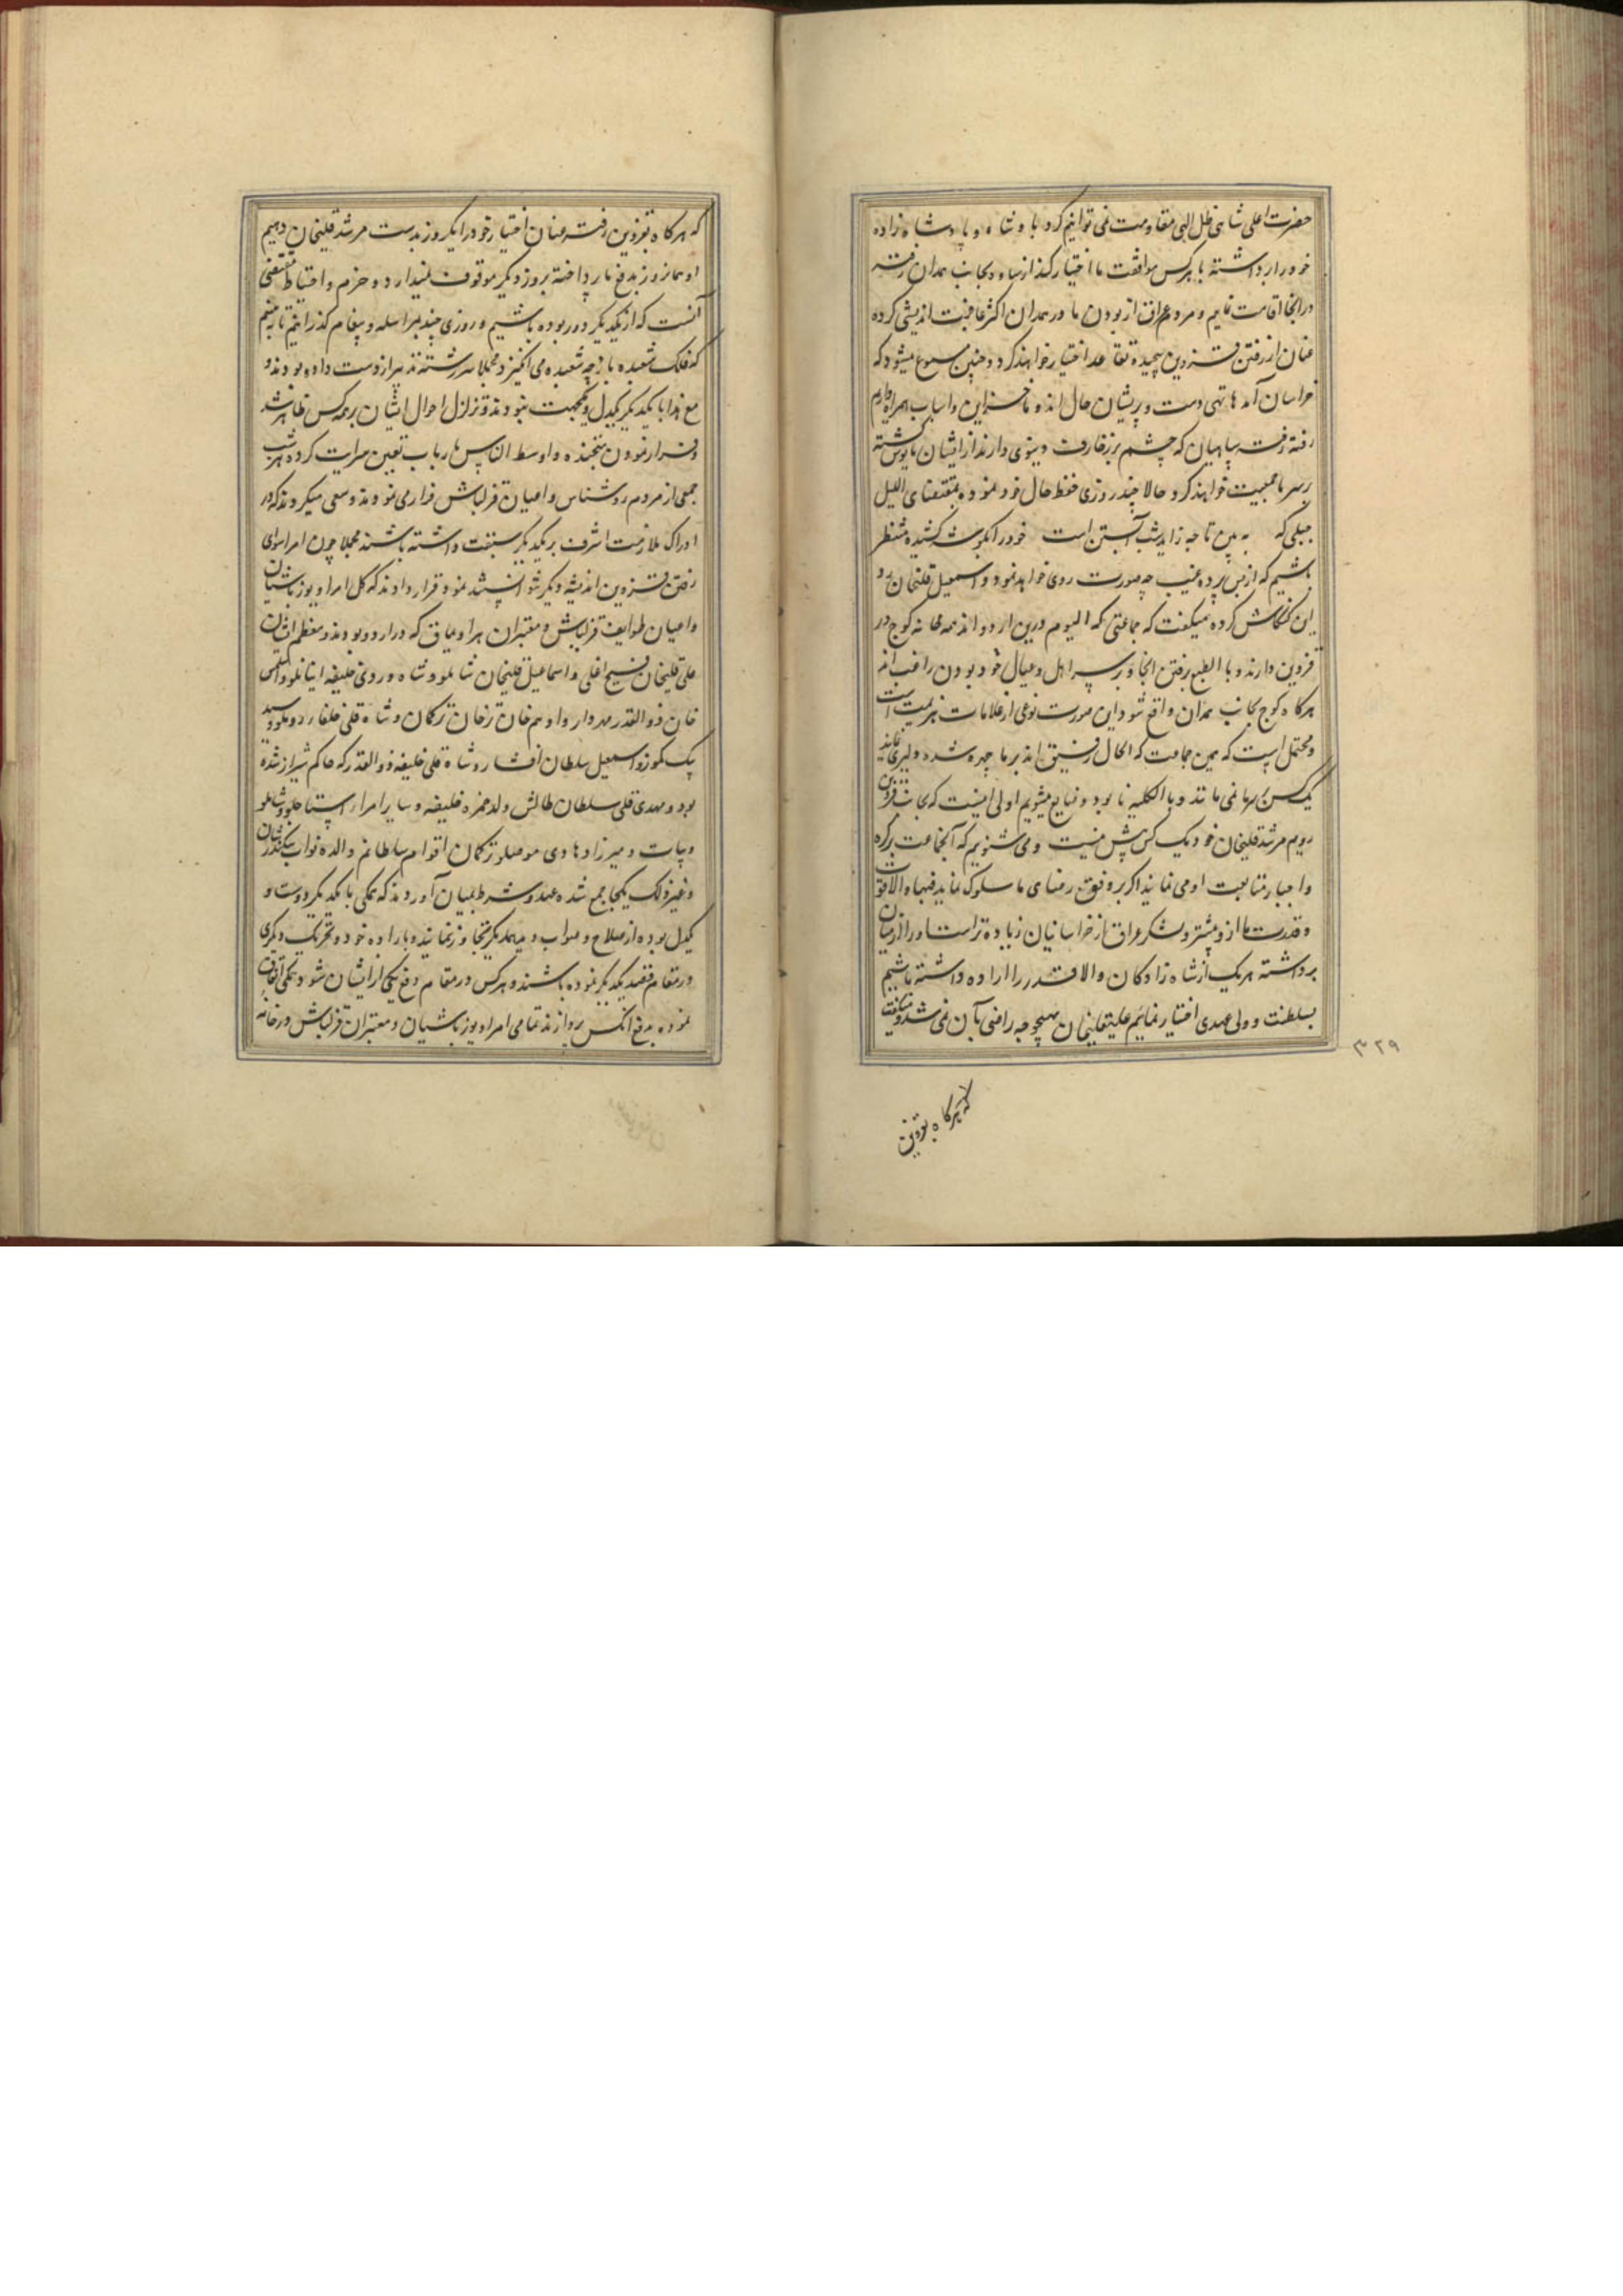 حضرت اعلی شاهی ظل الهی مقاومت نمی توانیم کرد با وشاه و پادشاه زاده
خود را برداشته با هر کس موافقت ما اختیار کند از سپاه بجانب همدان رفته
در آنجا اقامت نمایم و مردم عراق از بودن ما در همدان اکثر عاقبت اندیشی کرده
عنان از رفتن قزوین پیچیده تقاعد اختیار خواهند کرد و چنین مسموع میشود که
خراسان آمدها تهی دست و پریشان حال اند و ما خزاین و اسباب همراه داریم
رفته رفته سپاهیان که چشم بر زخارف دنیوی دارند از ایشان مایوس گشته
بر سر ما جمعیت خواهند کرد حالا چند روزی حفظ حال خود نموده بمقتضای اللیل
حبلی که به بین تا چه زاید شب آبستن است خود را بگوشه کشیده منتظر
باشیم که از پس پرده غیب چه صورت روی خواهد نمود و اسمعیل قلیخان رد
این کنکاش کرده میگفت که جماعتی که الیوم درین اردو اند همه خانه کوچ در
قزوین دارند و با الطبع برفتن آنجا و بر سر اهل و عیال خود بودن راغب اند
هرگاه کوچ بجانب همدان واقع شود این صورت نوعی از علامات هزیمت است
و محتمل است که همین جماعت که الحال رفیق اند بر ما چیره شده دلیری نمایند
یک کس بر ما نمی ماند و با الکلیه نابود و ضایع میشویم اولی اینست که بجانب قزوین
رویم مرشد قلیخان خود یک کس پیش نیست و می شنویم که آنجماعت بکره
و اجبار متابعت او می نمایند اگر بر وفق رضای ما سلوک نماید فبها و الا قوت
و قدرت ما ازو بیشتر و لشکر عراق از خراسانیان زیاده تر است او را از میان
برداشته هر یک از شاه زادگان والا قدر را اراده داشته باشیم
بسلطنت و ولی عهدی اختیار نمایم علیقلیخان بهیچوجه راضی بآن نمی شد و میگفت
۳۲۹
که هرگاه بقزوین
که هرگاه بقزوین رفته عنان اختیار خود را یکروز بدست مرشد قلیخان دهیم
او همانروز بدفع ما پرداخته بروز دیگر موقوف نمیدارد و حزم و احتیاط مقتضی
آنست که از یکدیگر دور بوده باشیم و روزی چند بمراسله و پیغام گذرانیم تا ببینم
که فلک شعبده باز چه شعبده می انگیزد مجملا سررشته تدبیر از دست داده بودند و
مع هذا با یکدیگر یکدل و یکجهت نبودند و تزلزل احوال ایشان بر همه کس ظاهر شد
و فرار نمودن پنجنده و اوسط الناس بارباب تعین سرایت کرده هر شب
جمعی از مردم روشناس و اعیان قزلباش فرار می نمودند و سعی میکردند که در
ادراک ملازمت اشرف بر یکدیگر سبقت داشته باشند مجملا چون امرا سوای
رفتن قزوین اندیشه دیگر نتوانستند نمود قرار دادند که کل امرا و یوزباشیان
و اعیان طوایف قزلباش و معتبران هر اویماق که در اردو بودند و معظم ایشان
علی قلیخان فتیح اغلی و اسماعیل قلیخان شاملو و شاه وردی خلیفه اینانلو و المس
خان ذوالقدر مهردار و ادهم خان ترخان ترکمان و شاه قلی خلفا و رومیلو و سید
بیک کمونه و اسمعیل سلطان افشار و شاه قلی خلیفه ذوالقدر که حاکم شیراز شده
بود و مهدی قلی سلطان طالش ولد حمزه خلیفه و سایر امراء استاجلو و شاملو
و بیات و میرزا دهاوی موصلو ترکمان اقوام سلطانم والده نواب سکندرشان
و غیر ذلک یکجا جمع شده عهد و شرط بمیان آوردند که تمکی با یکدیگر دوست و
یکدل بوده از صلاح و صواب و یکدیگر تجاوز ننمایند و باراده خود و تحریک دیگری
در مقام قصد یکدیگر نبوده باشند و هر کس در مقام دفع یکی از ایشان شود تمکی اتفاق
نموده بدفع آنکس پردازند تمامی امرا و یوزباشیان و معتبران قزلباش در خانه